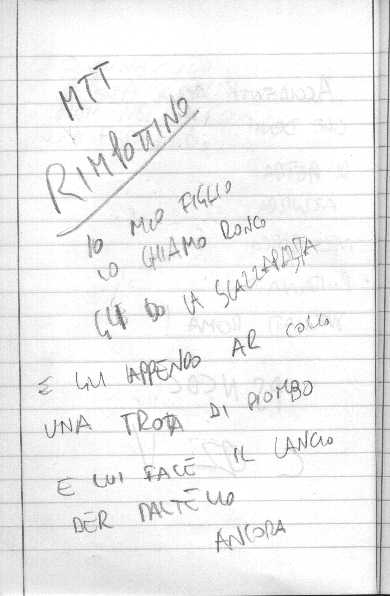 MTT
RIMBOTTINO
IO MIO FIGLIO
LO CHIAMO RONCO
GLI DO LA
E GLI APPENDO AR COLLO
UNA TROTA DI PIOMBO
E LUI FACE IL LANCIO
DER MARTELLO
ANCORA